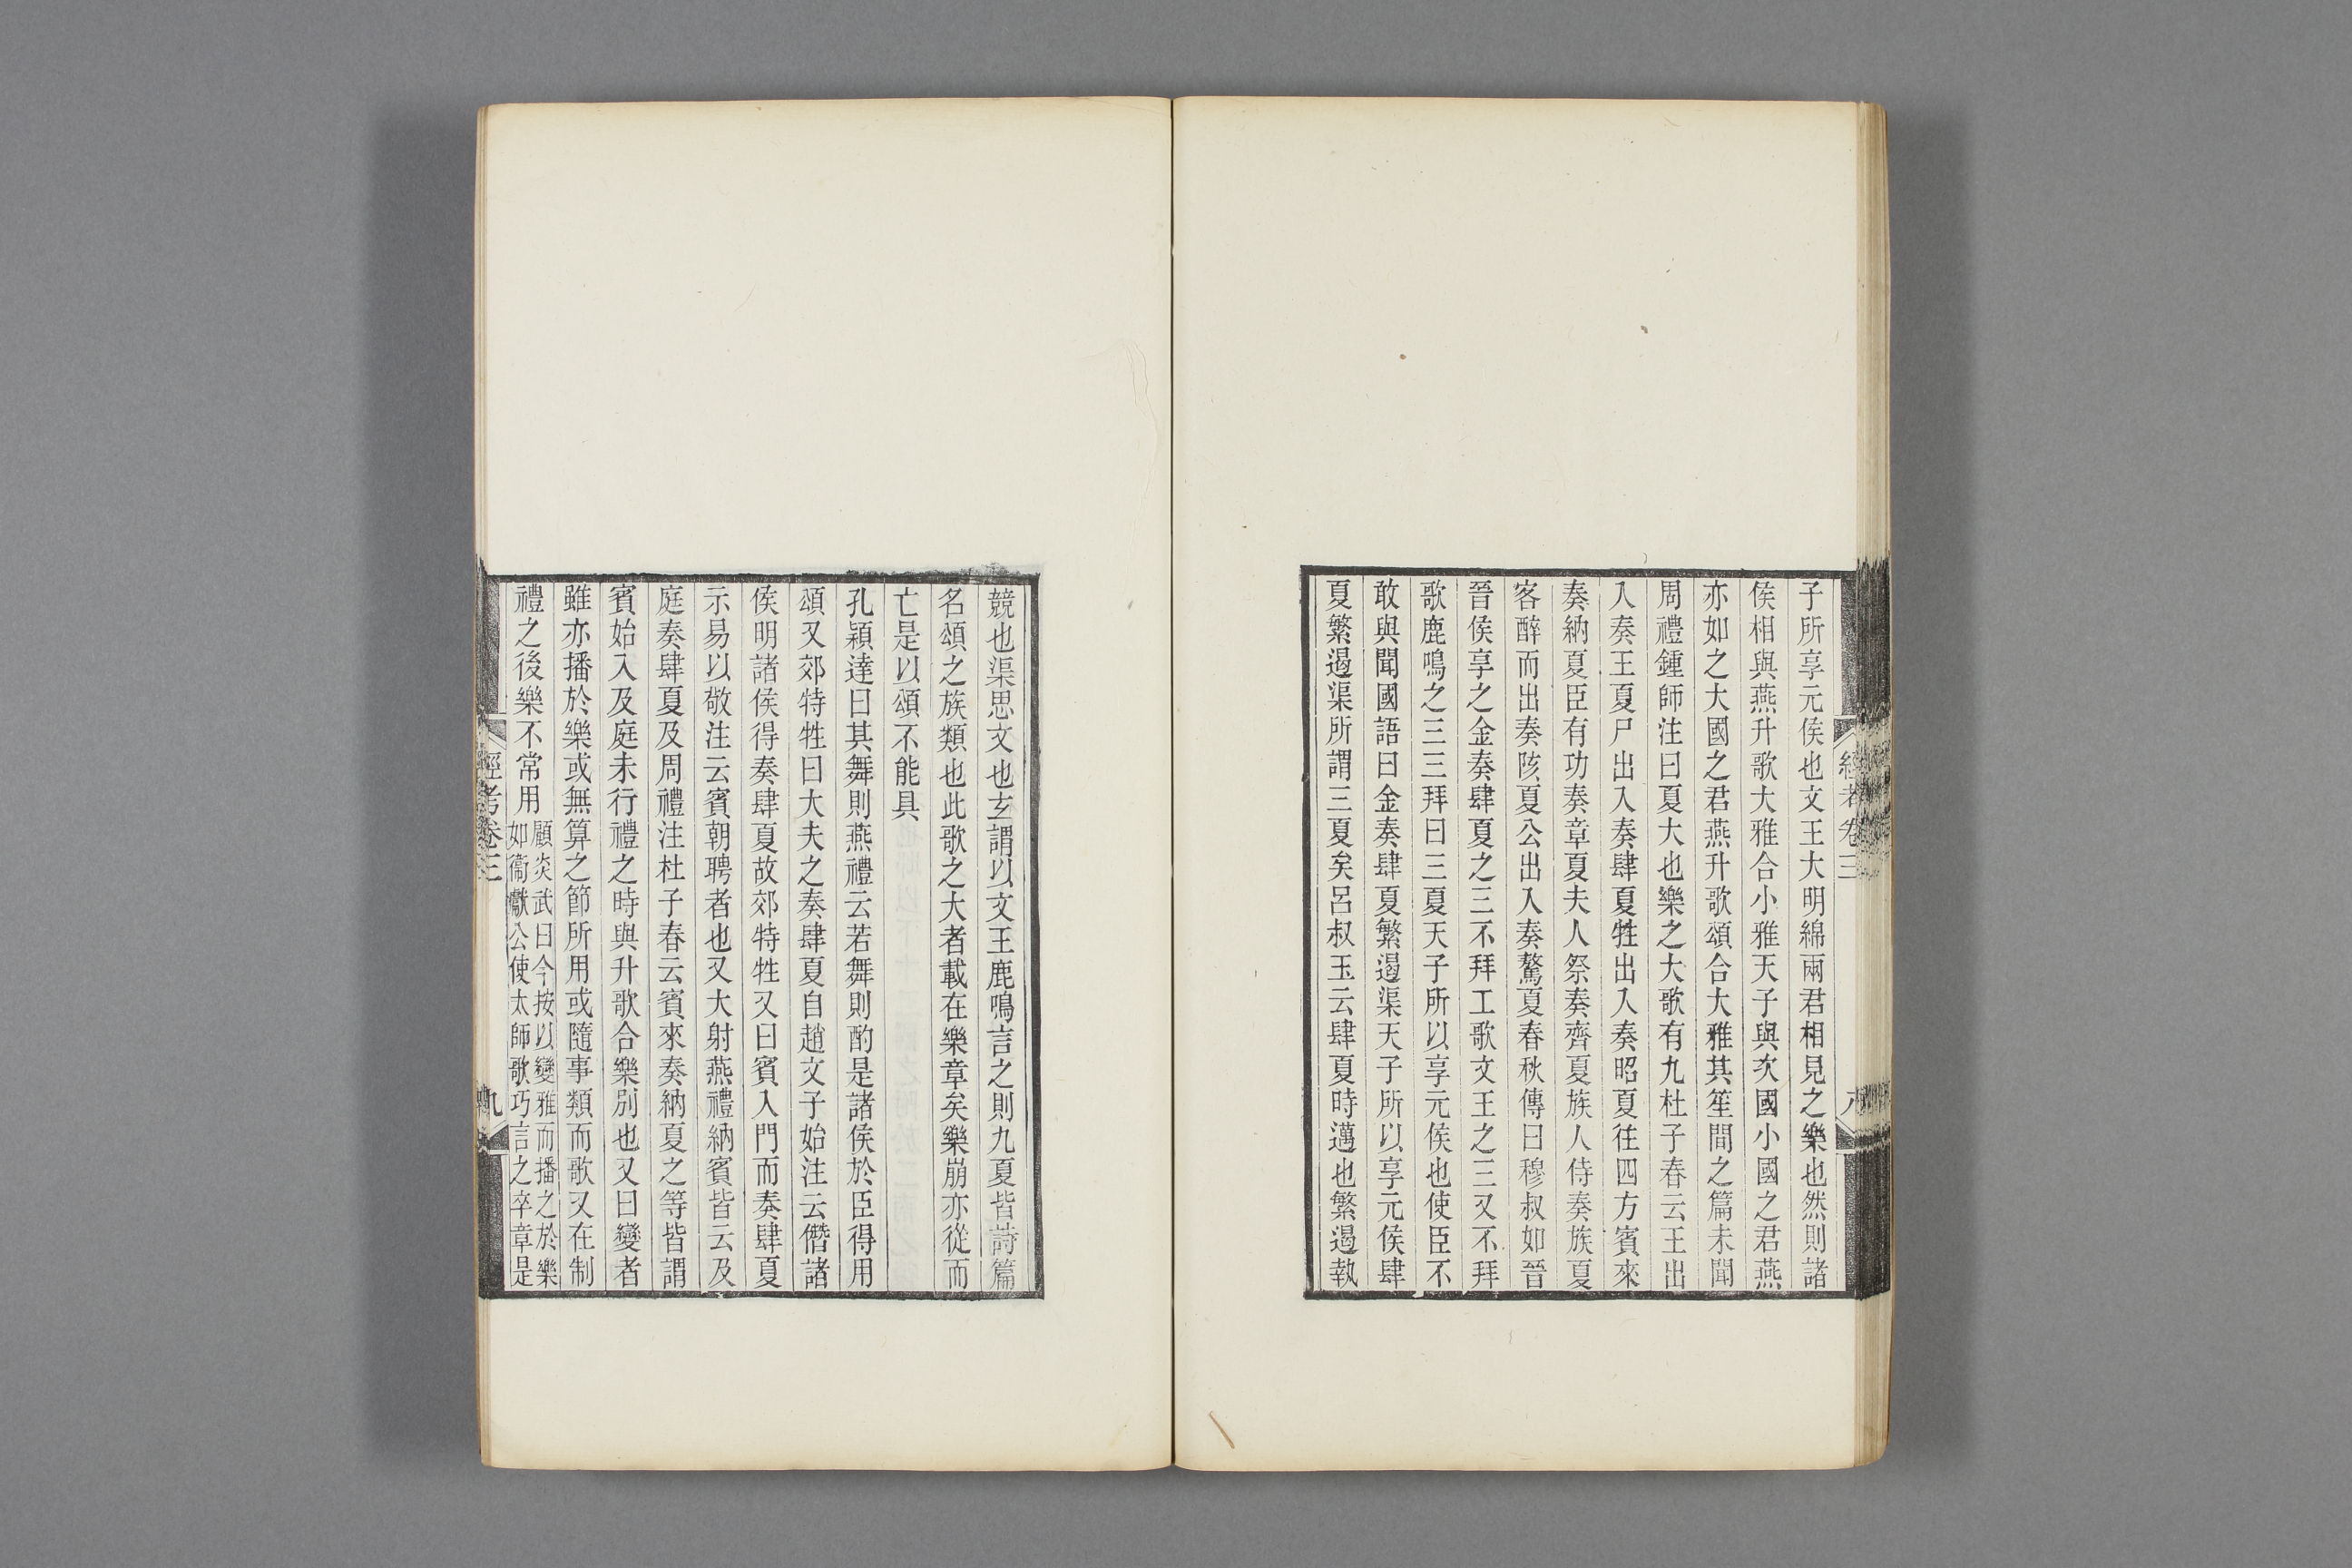 子所享元侯也文王大明綿兩君相見之樂也然則諸
侯相與燕升歌大雅合小雅天子與次國小國之君燕
亦如之大國之君燕升歌頌合大雅其笙間之篇未聞
周禮鍾師注曰夏大也樂之大歌有九杜子春云王出
入奏王夏尸出入奏肆夏牲出入奏昭夏往四方賓來
奏納夏臣有功奏章夏夫人祭奏齊夏族人侍奏族夏
客醉而出奏陔夏公出入奏驁夏春秋傳曰穆叔如晉
晉侯享之金奏肆夏之三不拜工歌文王之三又不拜
歌鹿鳴之三三拜曰三夏天子所以享元侯也使臣不
敢與聞國語曰金奏肆夏繁遏渠天子所以享元侯肆
夏繁遏渠所謂三夏矣呂叔玉云肆夏時邁也繁遏執
經考卷三
競也渠思文也玄謂以文王鹿鳴言之則九夏皆詩篇
名頌之族類也此歌之大者載在樂章矣樂崩亦從而
亡是以頌不能具
孔穎達曰其舞則燕禮云若舞則酌是諸侯於臣得用
頌又郊特牲曰大夫之奏肆夏自趙文子始注云僭諸
侯明諸侯得奏肆夏故郊特牲又曰賓入門而奏肆夏
示易以敬注云賓朝聘者也又大射燕禮納賓皆云及
庭奏肆夏及周禮注杜子春云賓來奏納夏之等皆謂
賓始入及庭未行禮之時與升歌合樂別也又曰變者
雖亦播於樂或無算之節所用或隨事類而歌又在制
禮之後樂不常用
顧炎武曰今按以變雅而播之於樂
如衞獻公使太師歌巧言之卒章是
經考卷三
九